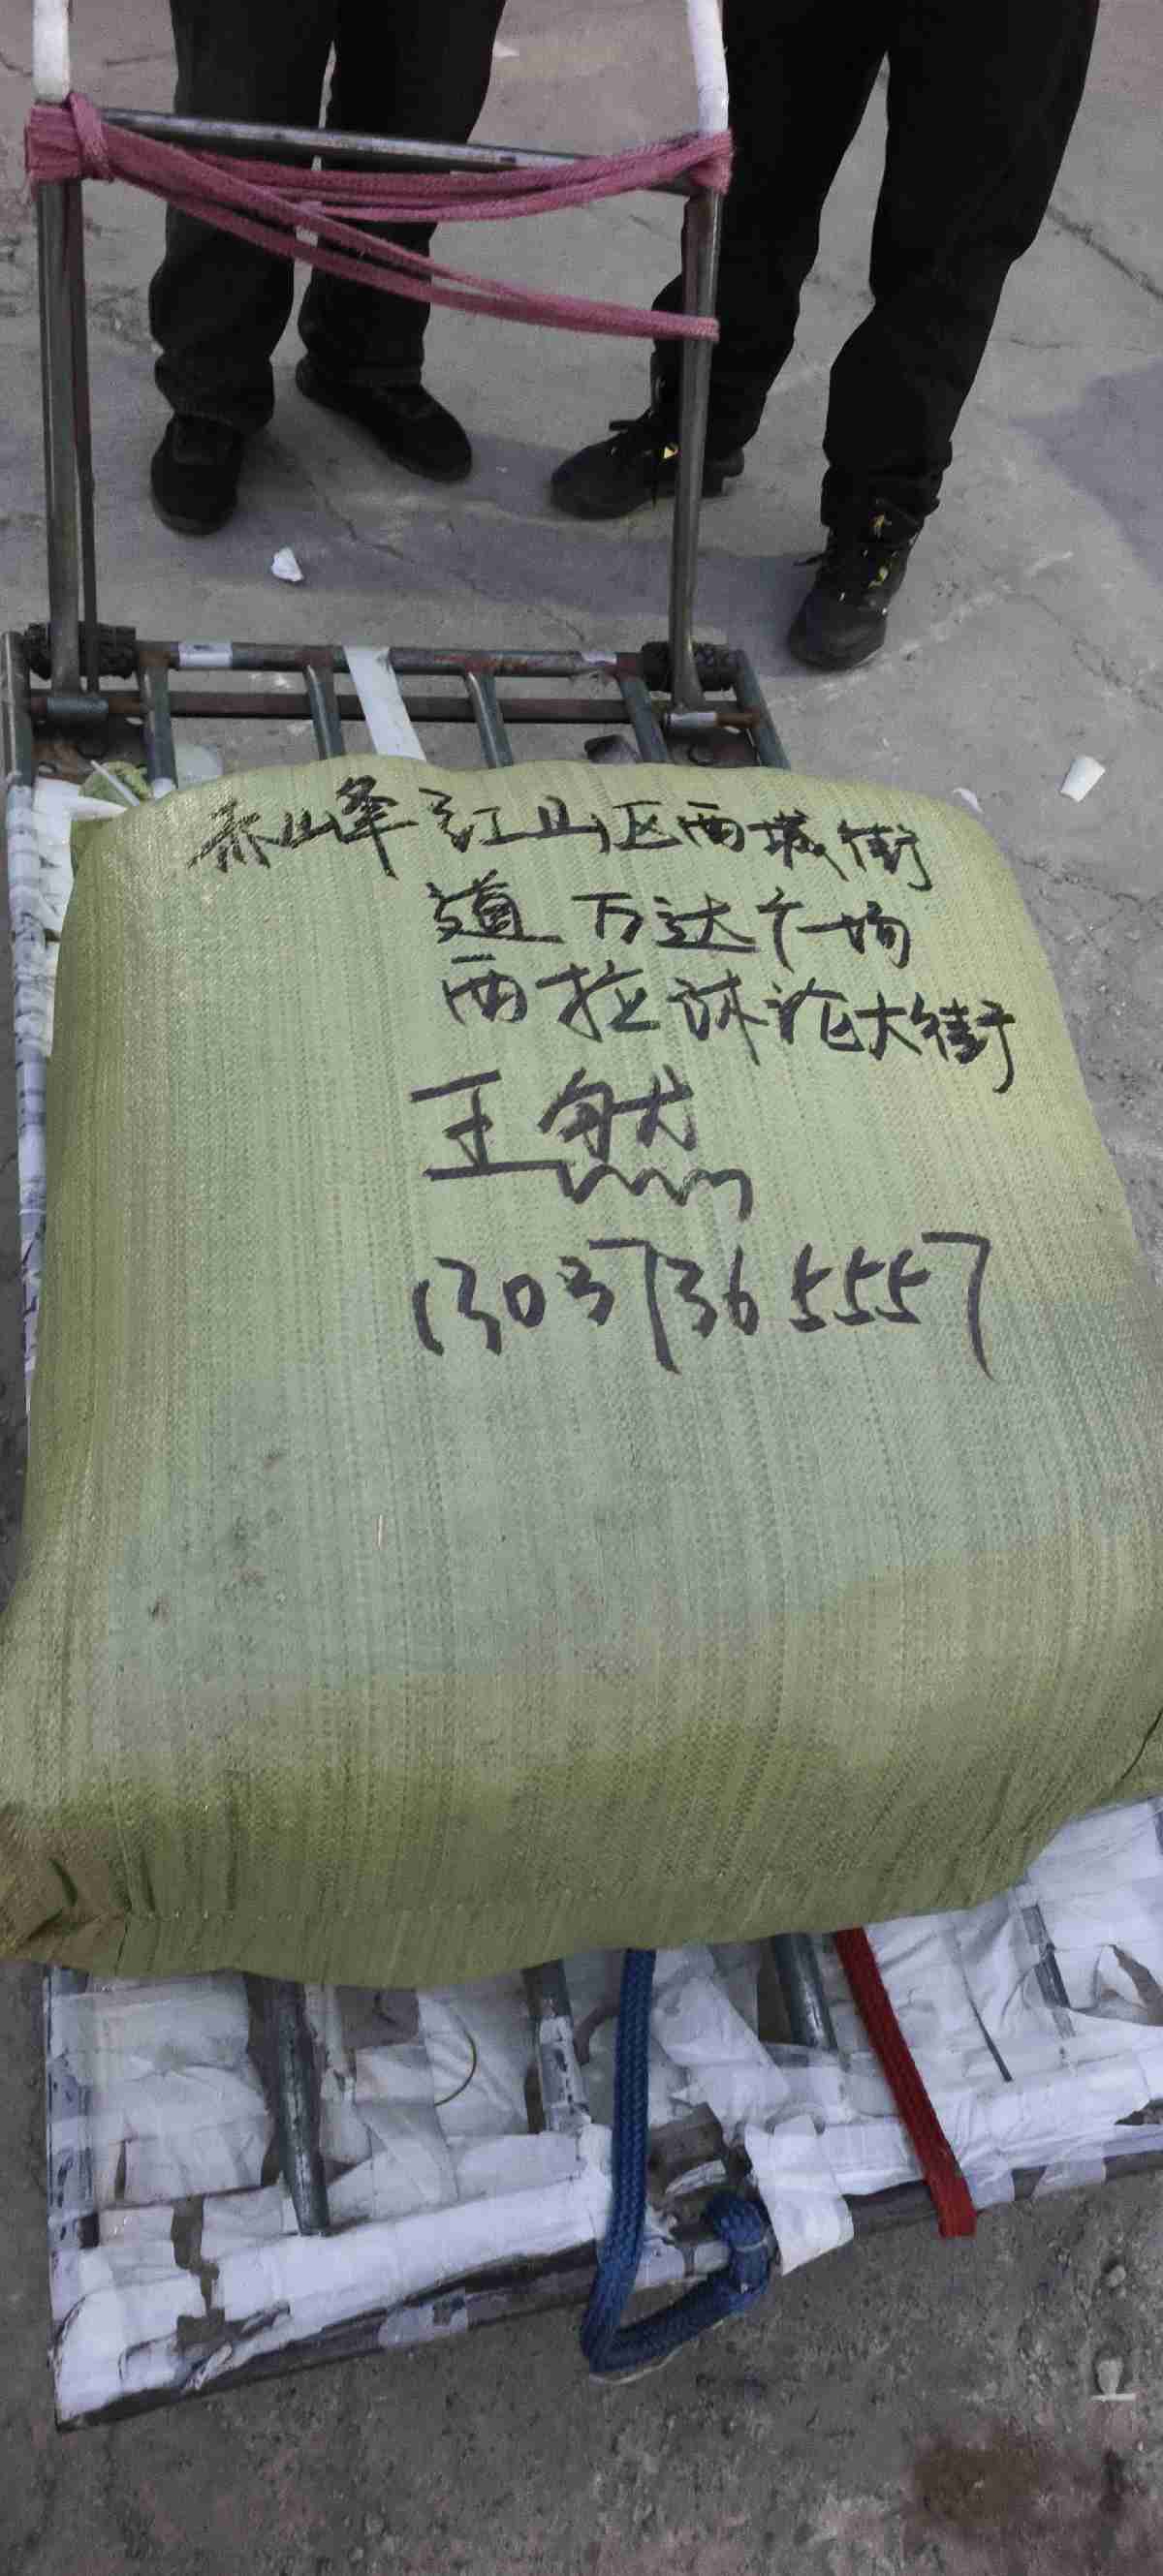 赤峰红山区西城街
道万达广场
西拉沐沦大街
王然
13037365557